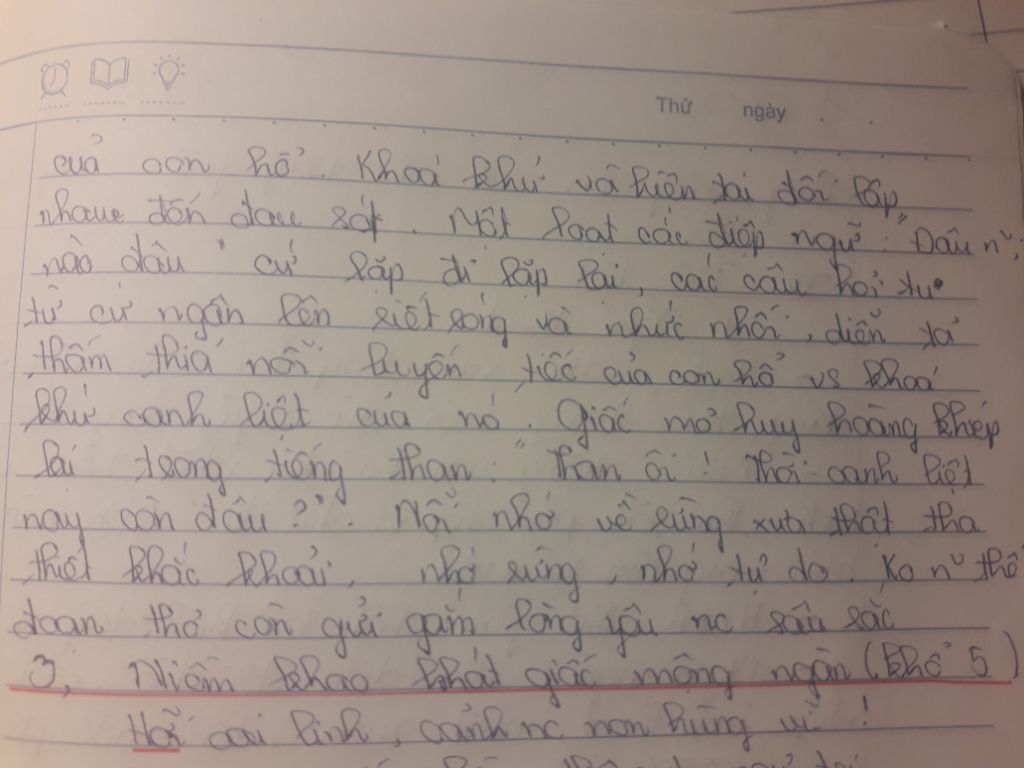 Thứ ngày
của con hổ. Khoá khứ và hiện tại đối lập
nhau đớn đau xót. Một loạt các điệp ngữ: "Đâu n~;
nào đâu" cứ lặp đi lặp lại, các câu hỏi tu
từ cứ ngân lên xiết sóng và nhức nhối, diễn tả
thấm thía nỗi luyến tiếc của con hổ vs khoá
khứ oanh liệt của nó. Giấc mơ huy hoàng khép
lại trong tiếng than: "Than ôi! Thời oanh liệt
nay còn đâu?". Nỗi nhớ về rừng xưa thật tha
thiết khắc khoải, nhớ rừng, nhớ tự do. Ko n~ thế
đoạn thơ còn gửi gắm lòng yêu nc sâu sắc
3, Niềm khao khát giấc mộng ngàn (khổ 5)
Hỡi oai linh, cảnh nc non hùng vĩ!